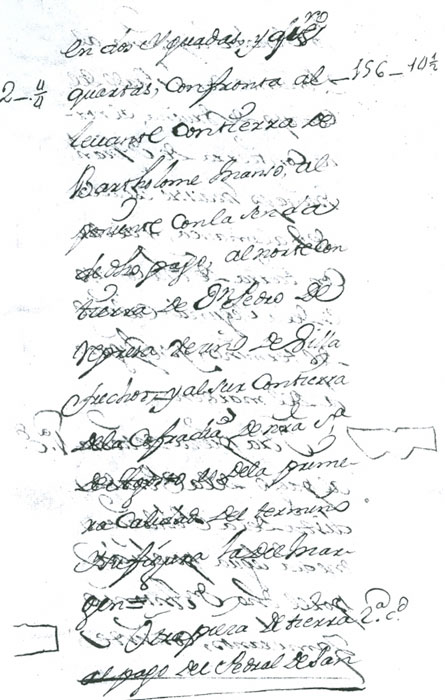 en dos Yguadas, y q.ro
2 - 4/4 quartas, confronta al - 156 - 10 1/2
levante con tierra de
Bartholome Manso, al
poniente con la senda
de dho pago, al norte con
tierra de Dn Pedro de
vezino de Villa
frechos, y al sur con tierra
de la Cofradia de nra Sa
es de la prime-
ra Calidad del termino
Su figura la del mar-
gen=
Otra pieza de tierra 2.a c.d
al pago del Pedral de San